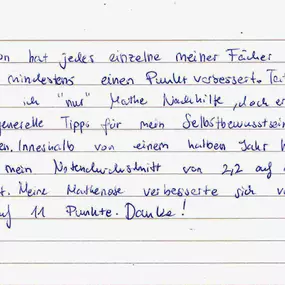 on hat jedes einzelne meiner Fächer
mindestens einen Punkt verbessert. Tat
ich "nur" Mathe Nachhilfe, doch er
generelle Tipps für mein Selbstbewusstsein
en. Innerhalb von einem halben Jahr h
mein Notendurchschnitt von 2,2 auf
t. Meine Mathenote verbesserte sich v
uf 11 Punkte. Danke!